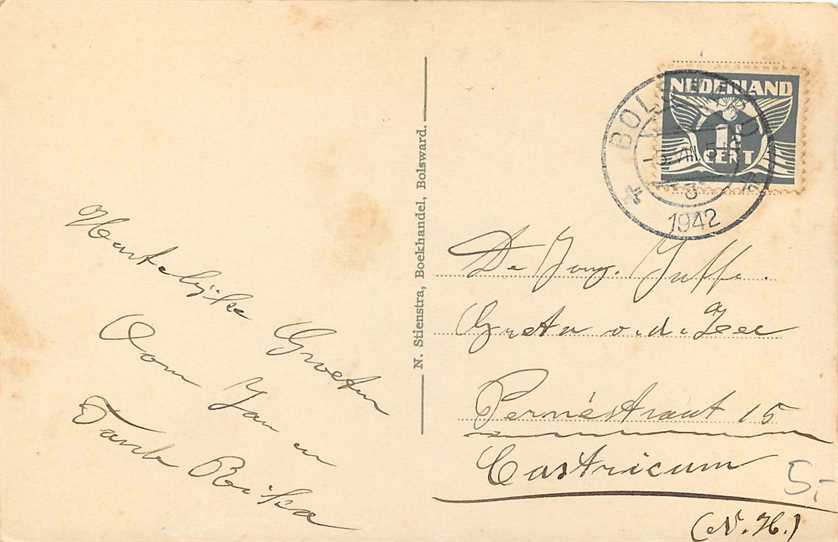 Hartelijke Groeten
Oom Jan en
Tante Reika
N. Stienstra, Boekhandel, Bolsward.
NEDERLAND
1½
CENT
BOLSWARD
1942
De Jong. Juffr.
Greta v.d. Zee
Pernéstraat 15
Castricum
(N. H.)
5,-